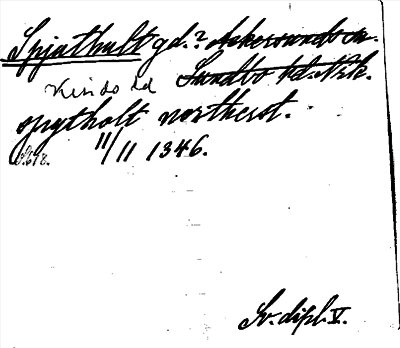 Spjuthult gd.? Askersunds sn.
Kinds hd Sundbo hd. Nrk.
spytholt northerst.
11/11 1346.
Sv. dipl. V.